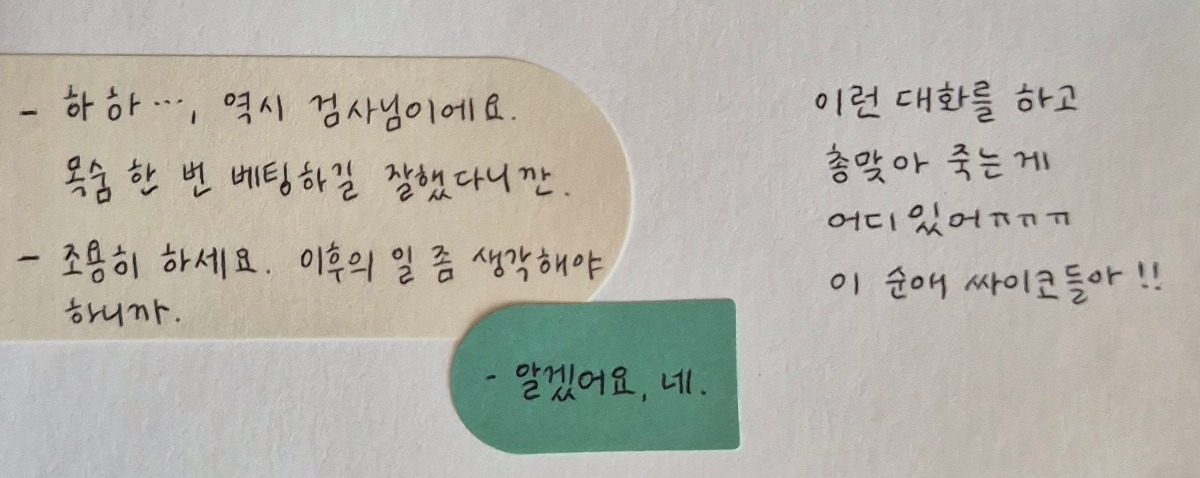 - 하하…, 역시 검사님이에요.
목숨 한 번 베팅하길 잘했다니깐.
- 조용히 하세요. 이후의 일 좀 생각해야
하니까.
- 알겠어요, 네.
이런 대화를 하고
총맞아 죽는게
어디있어ㅠㅠㅠ
이 순애 싸이코들아!!